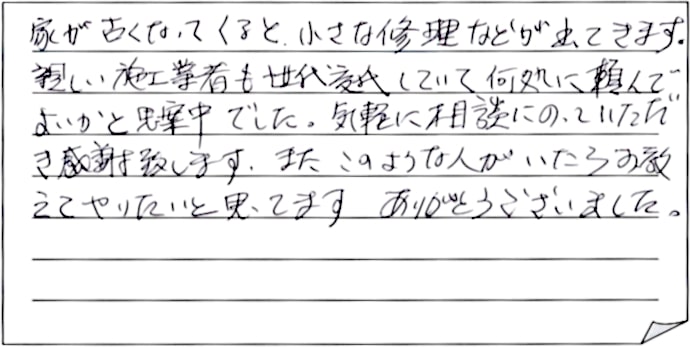 家が古くなってくると、小さな修理などが出てきます。
親しい施工業者も世代交代していて何処に頼んで
よいかと思案中でした。気軽に相談にのっていただ
き感謝致します。またこのような人がいたらお教
えてやりたいと思ってます ありがとうございました。